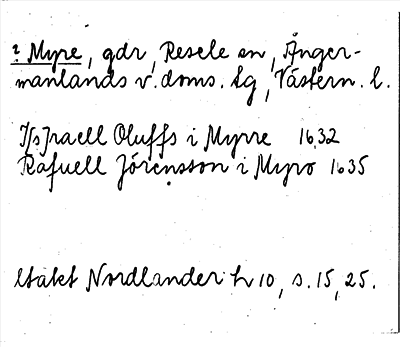 ? Myre, gdr, Resele sn, Ånger-
manlands v. doms. lg, Västern. l.
I[s]raell Oluffs i Myrre 1632
Rafuell Jörensson i Myro 1635
Utakt Nordlander h 10, s. 15, 25.